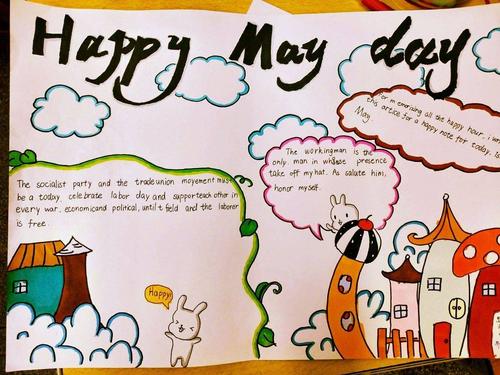 Happy May day
For memorising all the happy hour, I
this artice for a happy note for today.
May
The workingman is the
only man in whose presence
take off my hat. As salute him,
honor myself.
The socialist party and the trade union movement must
be a today, celebrate labor day and support each other in
every war, economic and political, until t field and the laborer
is free.
Happy!